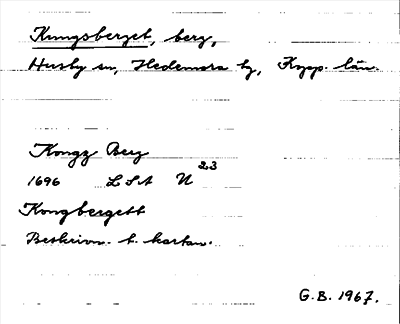 Kungsberget, berg,
Husby sn, Hedemora tg, Kopp. län.
Kongz Berg
1696 LSA U 23
Kongbergett
Beskrivn. t. kartan.
G.B. 1967.